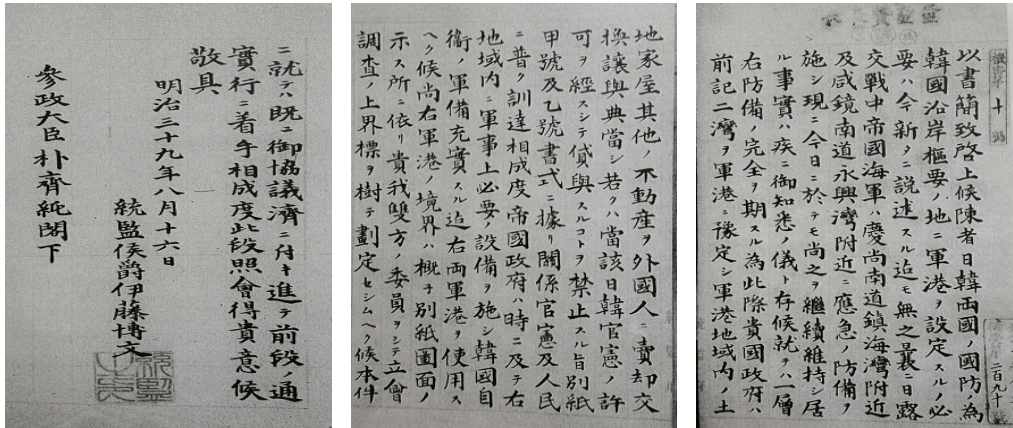 機密第十號
以書簡致啓上候陳者日韓両國ノ國防ノ為
韓國沿岸樞要ノ地ニ軍港ヲ設定スルノ必
要ハ今新タニ説述スル迠モ無之曩ニ日露
交戰中帝國海軍ハ慶尚南道鎮海灣附近
及咸鏡南道永興灣附近ニ應急ノ防備ヲ
施シ現ニ今日ニ於テモ尚之ヲ繼續維持シ居
ル事實ハ疾ニ御知悉ノ儀ト存候就テハ一層
右防備ノ完全ヲ期スル為此際貴國政府ハ
前記二灣ヲ軍港ニ豫定シ軍港地域内ノ土
地家屋其他ノ不動産ヲ外國人ニ賣却交
換讓與典當シ若クハ當該日韓官憲ノ許
可ヲ經スシテ貸與スルコトヲ禁止スル旨別紙
甲號及乙號書式ニ據リ關係官憲及人民
ニ普ク訓達相成度帝國政府ハ時ニ及テ右
地域内ニ軍事上必要ノ設備ヲ施シ韓國自
衛ノ軍備充實スル迠右両軍港ヲ使用ス
ヘク候尚右軍港ノ境界ハ概子別紙圖面ノ
示ス所ニ依リ貴我雙方ノ委員ヲシテ立會
調査ノ上界標ヲ樹テ劃定セシムヘク候本件
ニ就テハ既ニ御協議濟ニ付キ進テ前段ノ通
實行ニ着手相成度此段照會得貴意候
敬具
明治三十九年八月十六日
統監侯爵伊藤博文
參政大臣朴齊純閣下